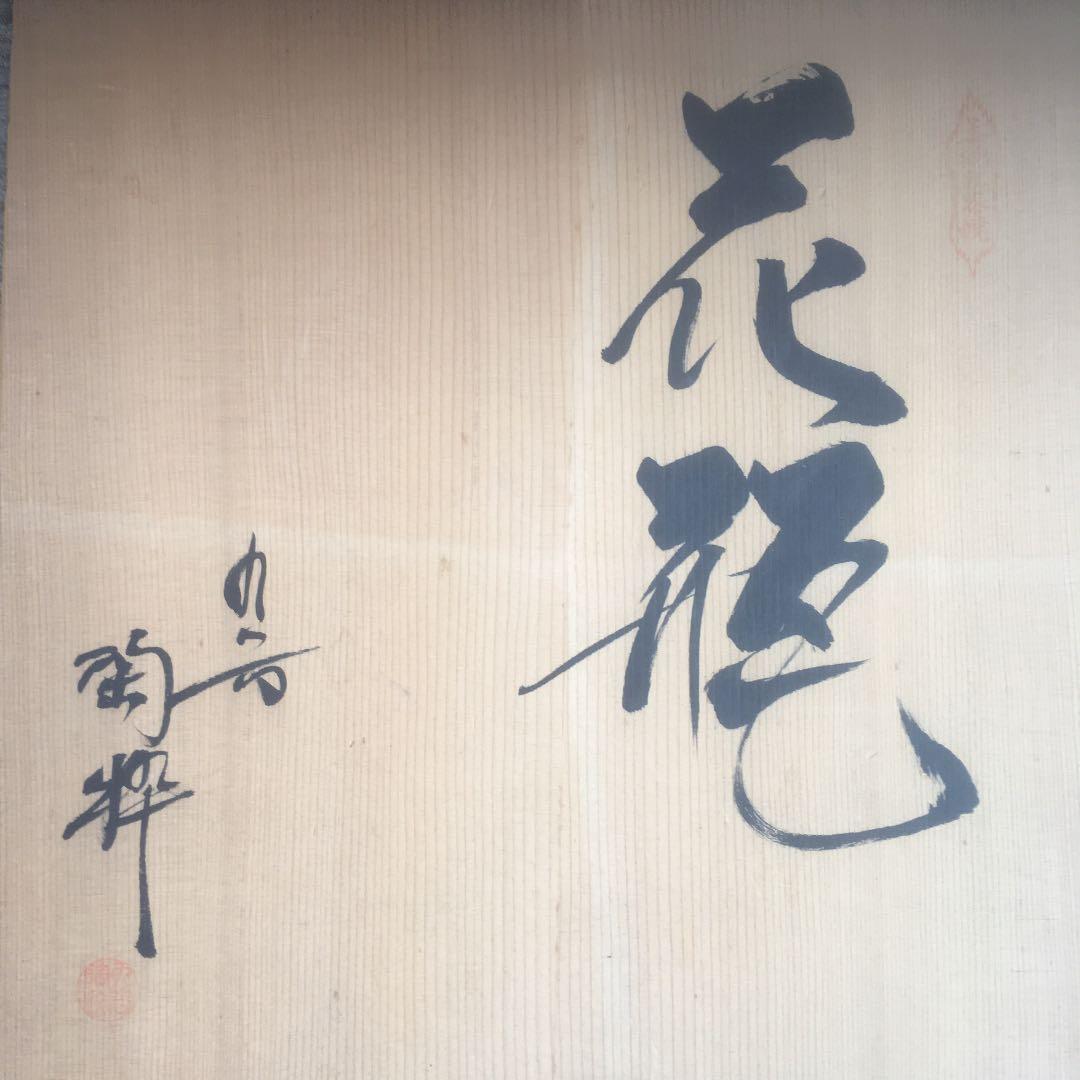 花瓶
九谷
陶粋